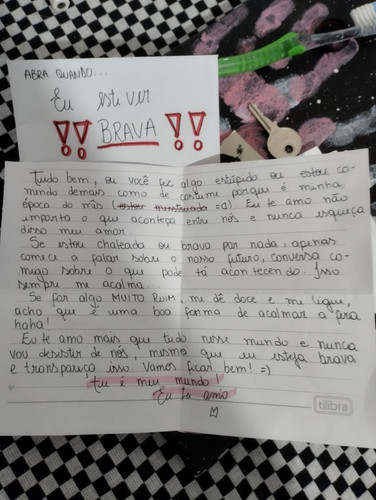 ABRA QUANDO...
Eu estiver
!! BRAVA !!
Tudo bem, ou você fez algo estúpido ou estou co-
mendo demais como de costume porque é minha
época do mês (estar menstruada =a) Eu te amo não
importa o que aconteça entre nós e nunca esqueça
disso meu amor.
Se estou chateada ou brava por nada, apenas
comece a falar sobre o nosso futuro, conversa co-
migo sobre o que pode tá acontecendo. Isso
sempre me acalma
Se for algo MUITO RUIM, me dê doce e me ligue,
acho que é uma boa forma de acalmar a fera
haha!
Eu te amo mais que tudo nesse mundo e nunca
vou desistir de nós, mesmo que eu esteja brava
e transpareça isso. Vamos ficar bem! =)
Tu é meu mundo!
Eu te amo
tilibra